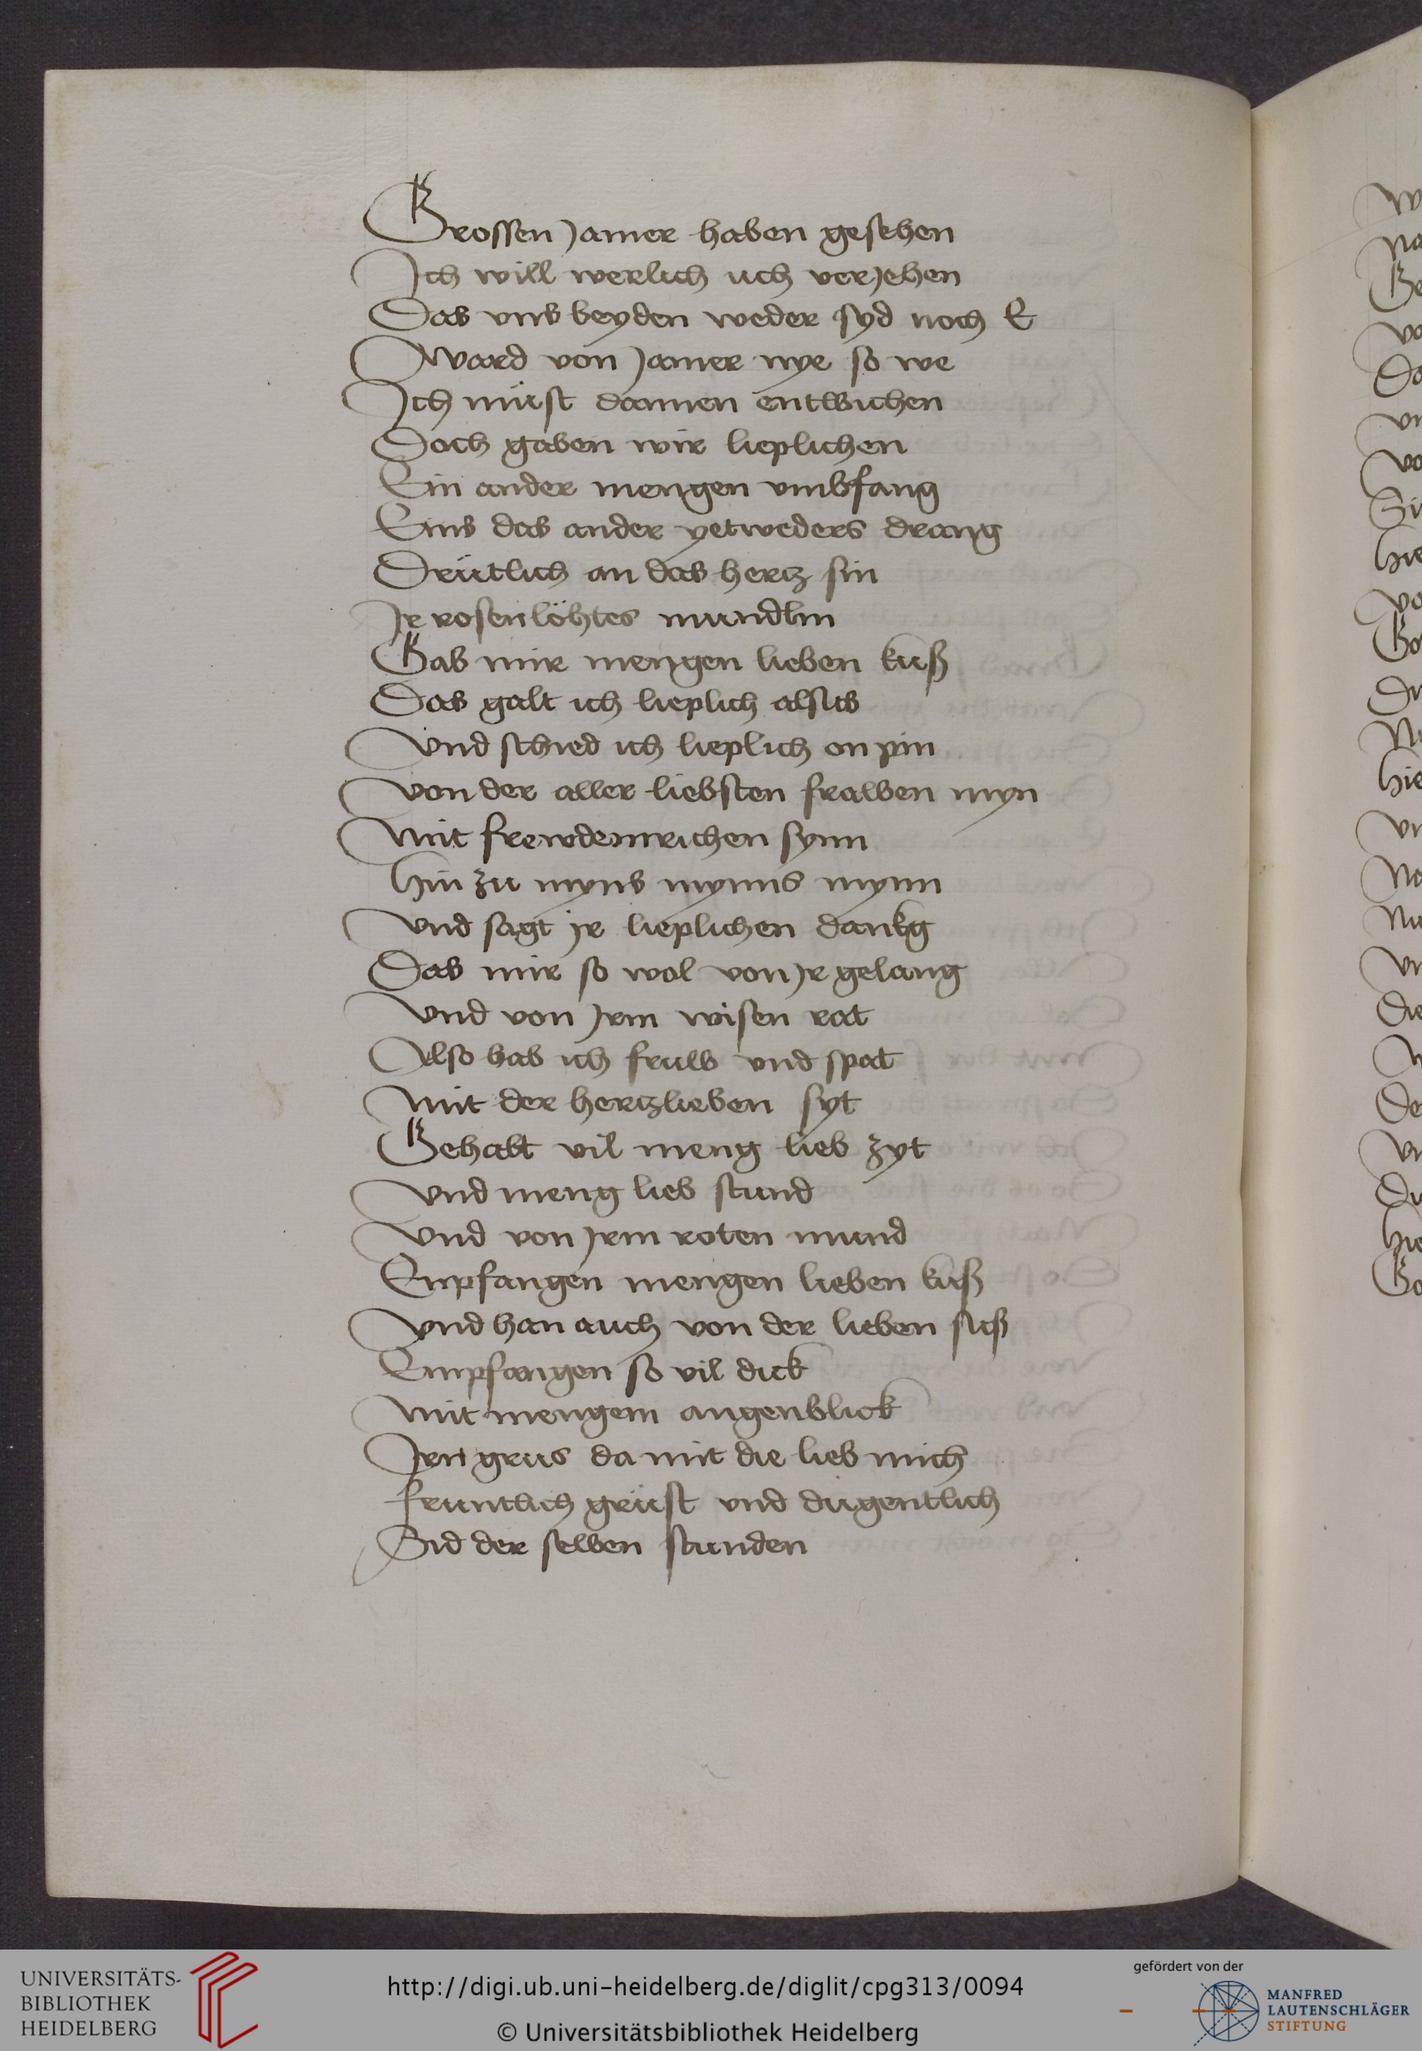 Grossen jamer haben gesehen
Ich will werlich uch verjehen
Das vns beyden weder syd noch E
Ward von jamer nye so we
Ich müst dannen entwichen
Doch gaben wir lieplichen
Ein ander mengen vmbfang
Eins das ander yetweders drang
Drütlich an das hertz sin
Ir rosenlöhtes mundlin
Gab mir mengen lieben kuß
Das galt ich lieplich alsus
Vnd schied ich lieplich on pin
Von der aller liebsten frawen myn
Mit frewdenrichen synn
Hin zu myns mynns mynn
Vnd sagt jr lieplichen dankg
Das mir so wol von jr gelang
Vnd von jrm wisen rat
Also hab ich fruw vnd spat
Mit der hertzlieben syt
Gehabt vil meng lieb zyt
Vnd meng lieb stund
Vnd von jrm roten mund
Empfangen mengen lieben kuß
Vnd han auch von der lieben suß
Empfangen so vil dick
Mit mengem augenblick
Irn grus da mit die lieb mich
Fruntlich grüst vnd dugentlich
Sid der selben stunden
UNIVERSITÄTS-
BIBLIOTHEK
HEIDELBERG
http://digi.ub.uni-heidelberg.de/diglit/cpg313/0094
© Universitätsbibliothek Heidelberg
gefördert von der
MANFRED
LAUTENSCHLÄGER
STIFTUNG